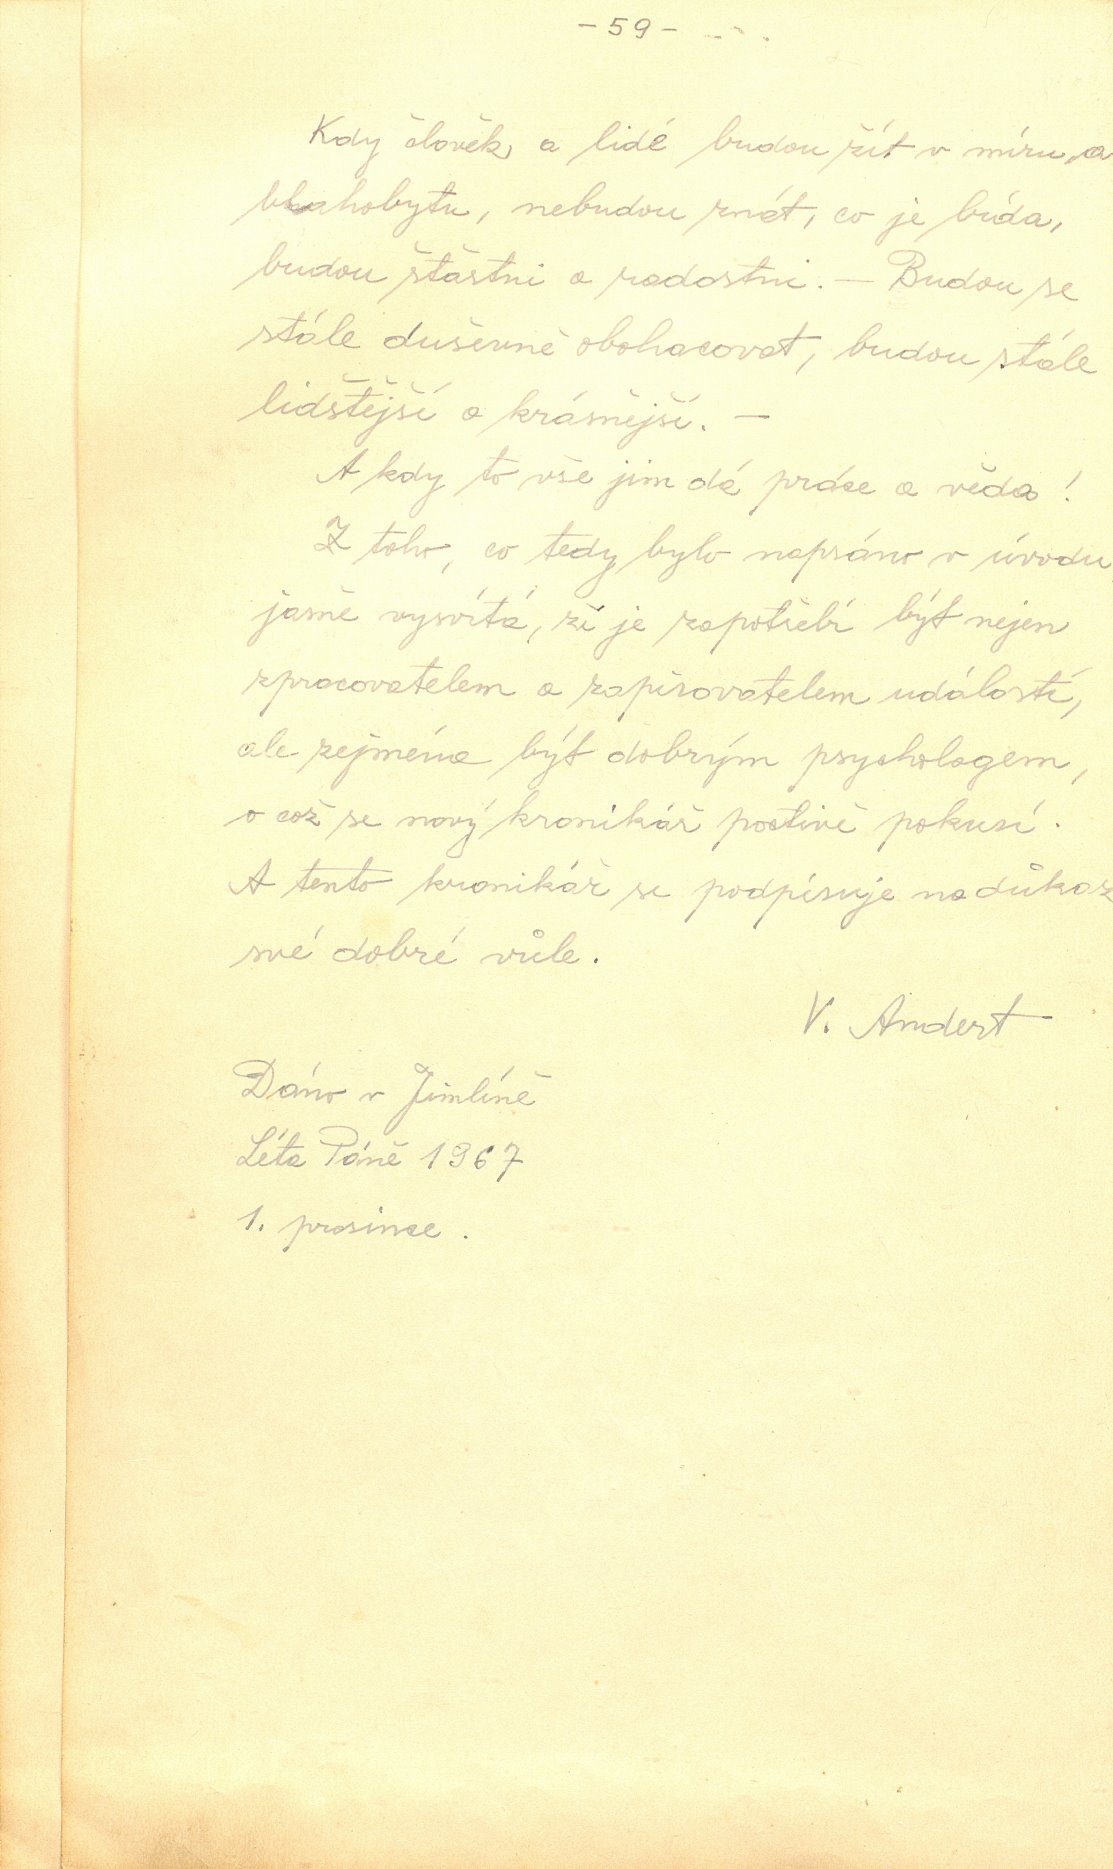 - 59 -
Kdy člověk a lidé budou žít v míru a
blahobytu, nebudou znát, co je bída,
budou šťastni a radostni. — Budou se
stále duševně obohacovat, budou stále
lidštější a krásnější. —
A kdy to vše jim dá práce a věda!
Z toho, co tedy bylo napsáno v úvodu
jasně vysvítá, že je zapotřebí být nejen
zpracovatelem a zapisovatelem událostí,
ale zejména být dobrým psychologem,
o což se nový kronikář poctivě pokusí.
A tento kronikář se podpisuje na důkaz
své dobré vůle.
V. Andert
Dáno v Jimlíně
Léta Páně 1967
1. prosince.